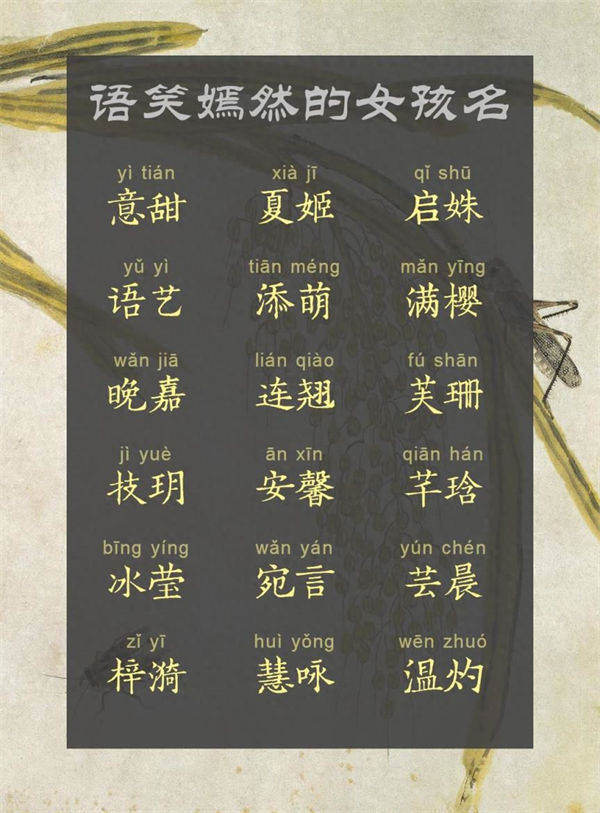 语笑嫣然的女孩名
yì tián xià jī qǐ shū
意甜 夏姬 启姝
yǔ yì tiān méng mǎn yīng
语艺 添萌 满樱
wǎn jiā lián qiào fú shān
晚嘉 连翘 芙珊
jì yuè ān xīn qiān hán
技玥 安馨 芊琀
bīng yíng wǎn yán yún chén
冰莹 宛言 芸晨
zǐ yī huì yǒng wēn zhuó
梓漪 慧咏 温灼